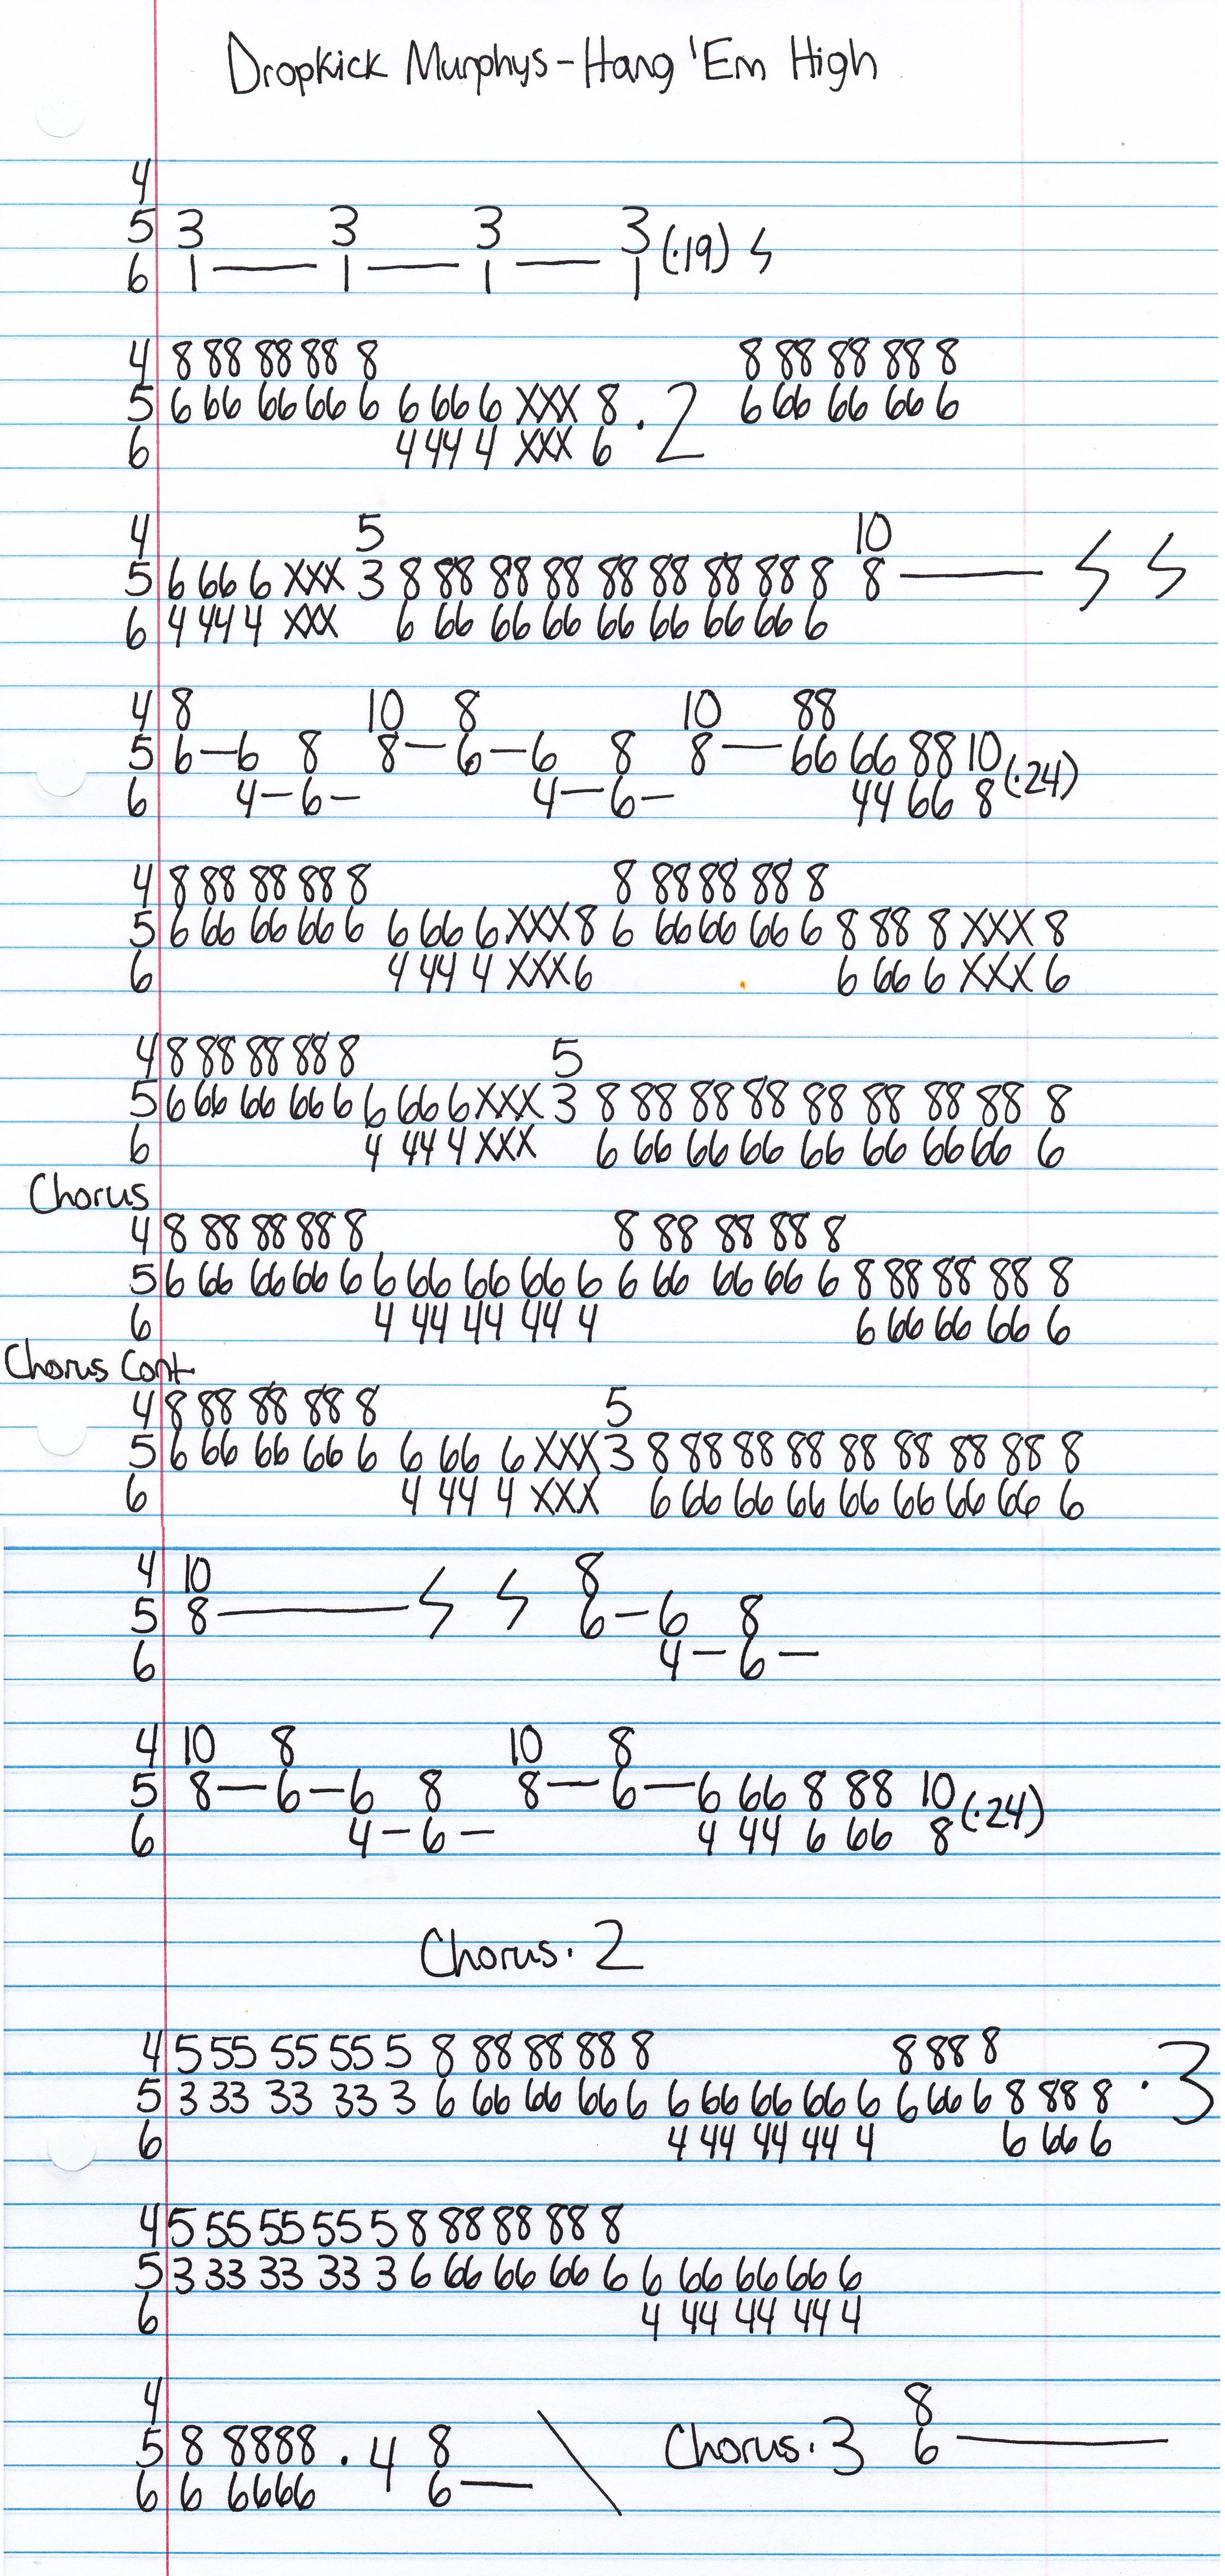 Dropkick Murphys - Hang 'Em High
4
5 3 3 3 3 (·19) ϟ
6 1 — 1 — 1 — 1
4 8 88 88 88 8 8 88 88 88 8
5 6 66 66 66 6 6 66 6 XXX 8 · 2 6 66 66 66 6
6 4 44 4 XXX 6
4 5 10
5 6 66 6 XXX 3 8 88 88 88 88 88 88 88 8 8 — ϟ ϟ
6 4 44 4 XXX 6 66 66 66 66 66 66 66 6
4 8 10 8 10 88
5 6 — 6 8 8 — 6 — 6 8 8 — 66 66 88 10 (·24)
6 4 — 6 — 4 — 6 — 44 66 8
4 8 88 88 88 8 8 88 88 88 8
5 6 66 66 66 6 6 66 6 XXX 8 6 66 66 66 6 8 88 8 XXX 8
6 4 44 4 XXX 6 6 66 6 XXX 6
4 8 88 88 88 8 5
5 6 66 66 66 6 6 66 6 XXX 3 8 88 88 88 88 88 88 88 8
6 4 44 4 XXX 6 66 66 66 66 66 66 66 6
Chorus
4 8 88 88 88 8 8 88 88 88 8
5 6 66 66 66 6 6 66 66 66 6 6 66 66 66 6 8 88 88 88 8
6 4 44 44 44 4 6 66 66 66 6
Chorus Cont.
4 8 88 88 88 8 5
5 6 66 66 66 6 6 66 6 XXX 3 8 88 88 88 88 88 88 88 8
6 4 44 4 XXX 6 66 66 66 66 66 66 66 6
4 10 8
5 8 — ϟ ϟ 6 — 6 8
6 4 — 6 —
4 10 8 10 8
5 8 — 6 — 6 8 8 — 6 — 6 66 8 88 10 (·24)
6 4 — 6 — 4 44 6 66 8
Chorus · 2
4 5 55 55 55 5 8 88 88 88 8 8 88 8
5 3 33 33 33 3 6 66 66 66 6 6 66 66 66 6 6 66 6 8 88 8 · 3
6 4 44 44 44 4 6 66 6
4 5 55 55 55 5 8 88 88 88 8
5 3 33 33 33 3 6 66 66 66 6 6 66 66 66 6
6 4 44 44 44 4
4 8
5 8 8888 · 4 8 \ Chorus · 3 6 —
6 6 6666 6 —